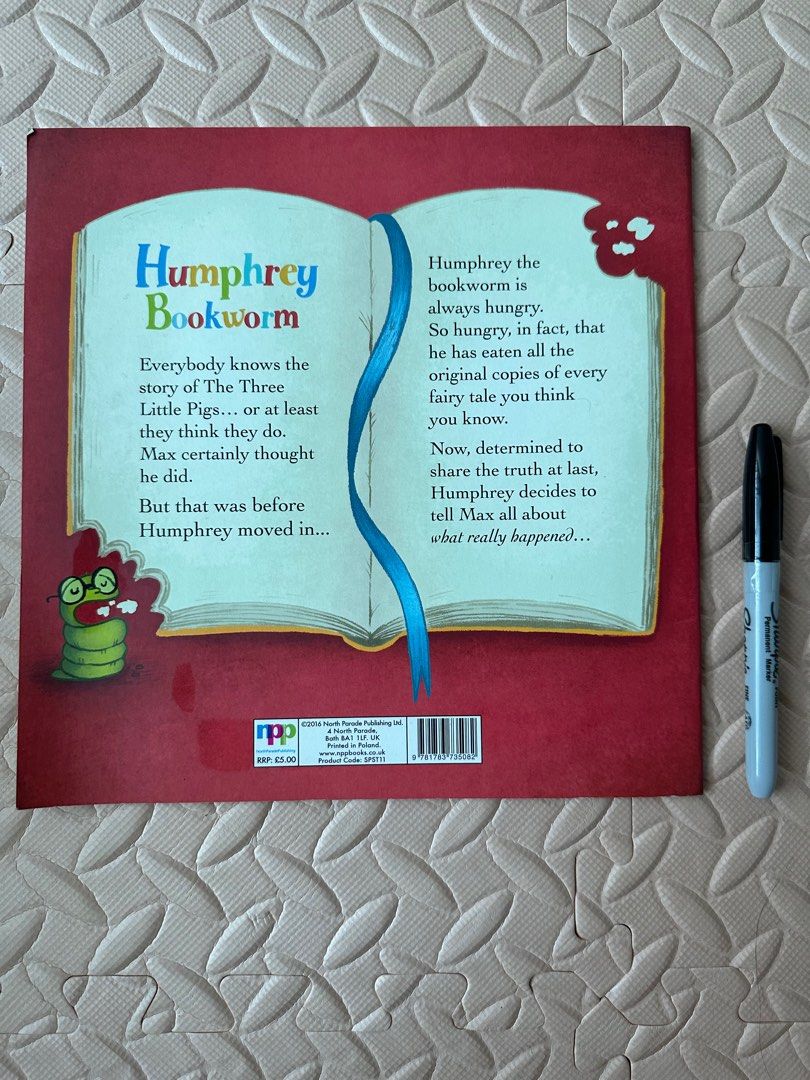 Humphrey
Bookworm
Everybody knows the
story of The Three
Little Pigs... or at least
they think they do.
Max certainly thought
he did.
But that was before
Humphrey moved in...
Humphrey the
bookworm is
always hungry.
So hungry, in fact, that
he has eaten all the
original copies of every
fairy tale you think
you know.
Now, determined to
share the truth at last,
Humphrey decides to
tell Max all about
what really happened...
npp
NorthParadePublishing
RRP: £5.00
©2016 North Parade Publishing Ltd.
4 North Parade,
Bath BA1 1LF. UK
Printed in Poland.
www.nppbooks.co.uk
Product Code: SPST11
9 781783 735082
Sharpie
Permanent Marker
FINE